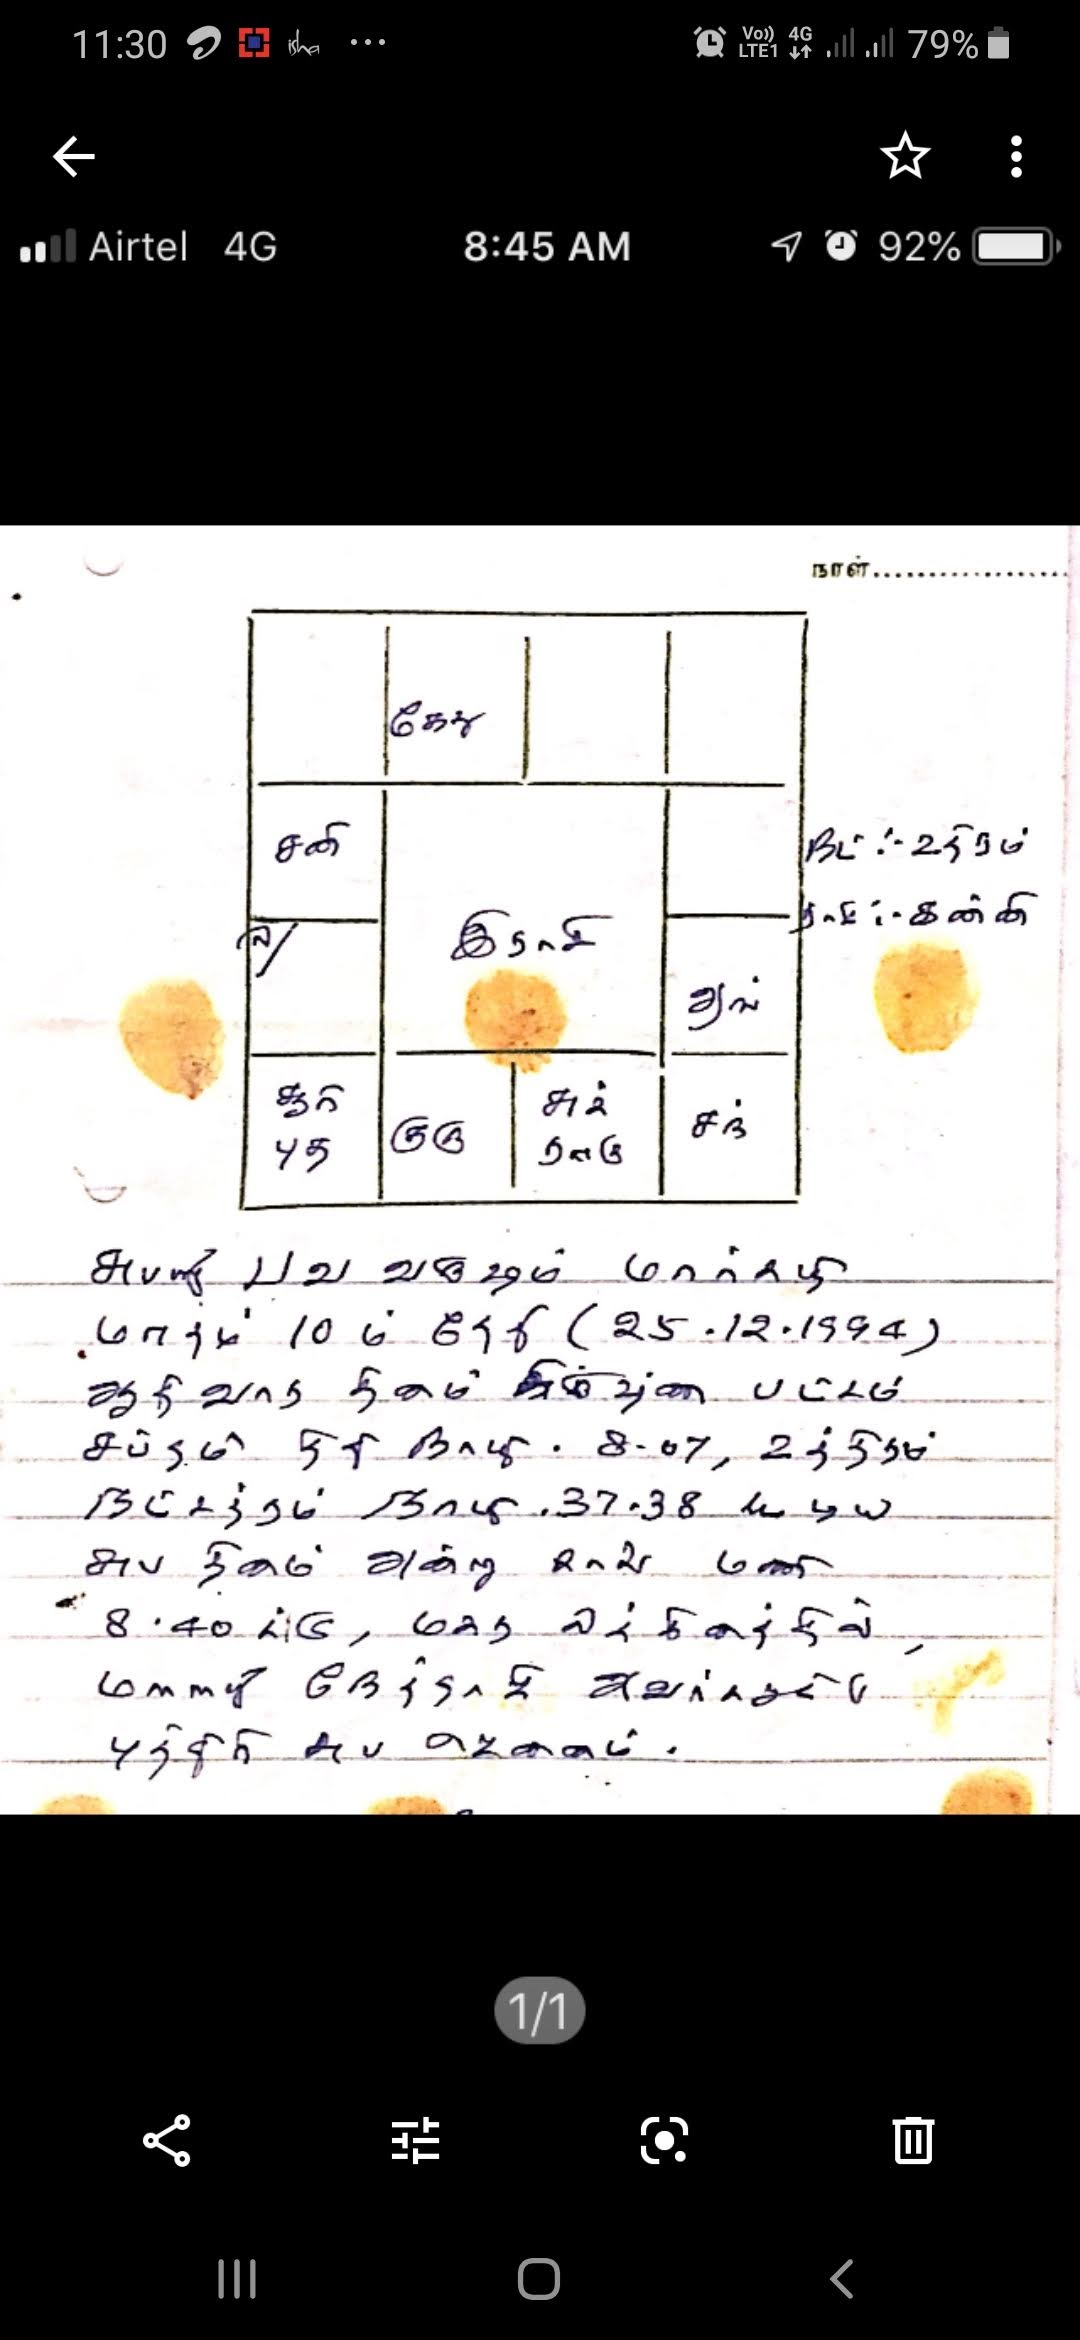 11:30 isha ... Vo)) LTE1 4G 79%
Airtel 4G 8:45 AM 92%
நாள்
கேது
சனி
நட் :- உத்திரம்
ராசி :- கன்னி
ல/
இராசி
அங்
சூரி
புத
குரு
சுக்
ராகு
சந்
சுபஸ்ரீ பவ வருஷம் மார்கழி
மாதம் 10 ம் தேதி (25.12.1994)
ஆதிவார தினம் பட்சம்
சப்தமி திதி நாழி. 8-07, உத்திரம்
நட்சத்திரம் நாழி. 37.38 கூடிய
சுப தினம் அன்று காலை மணி
8.40 க்கு, மகர லக்கினத்தில்,
அவர்கட்கு
புத்திரி சுப ஜனனம்.
1/1